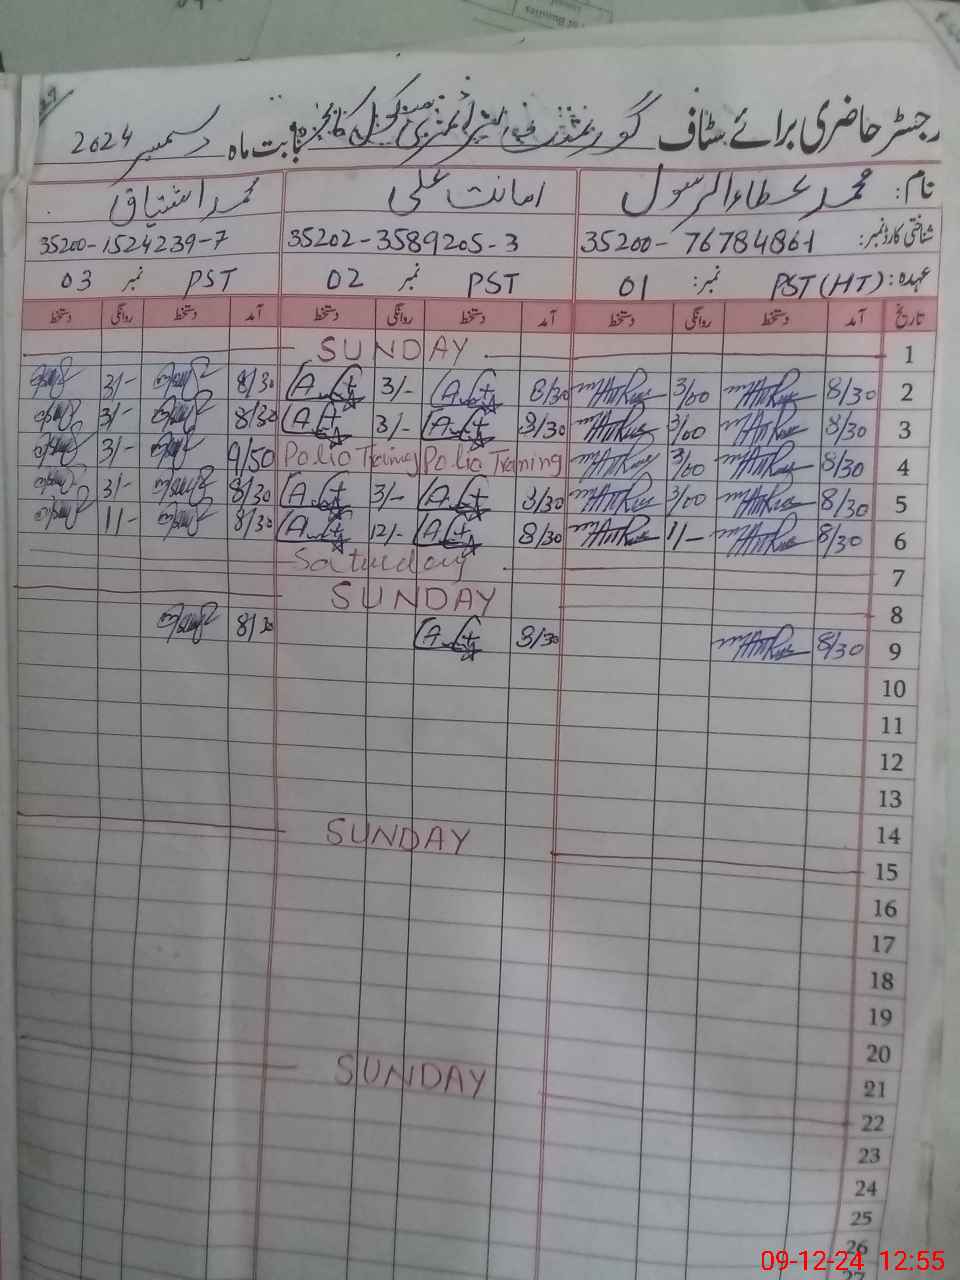 رجسٹر حاضری برائے سٹاف گورنمنٹ بابت ماہ دسمبر 2024
نام: محمد عطاء الرسول امانت علی محمد اشتیاق
شناختی کارڈ نمبر: 35200-76784861 35202-3589205-3 35200-1524239-7
عہدہ: PST (HT) نمبر: 01 PST نمبر 02 PST نمبر 03
تاریخ آمد دستخط روانگی دستخط آمد دستخط روانگی دستخط آمد دستخط روانگی دستخط
1 SUNDAY
2 8/30 3/00 8/30 3/- 8/30 3/-
3 8/30 3/00 8/30 3/- 8/30 3/-
4 8/30 3/00 Polio Training Polio Training 9/50 3/-
5 8/30 3/00 8/30 3/- 8/30 3/-
6 8/30 1/- 8/30 12/- 8/30 11/-
7 Saturday
8 SUNDAY
9 8/30 8/30 8/30
10
11
12
13
14
15 SUNDAY
16
17
18
19
20
21
22 SUNDAY
23
24
25
26
27
09-12-24 12:55